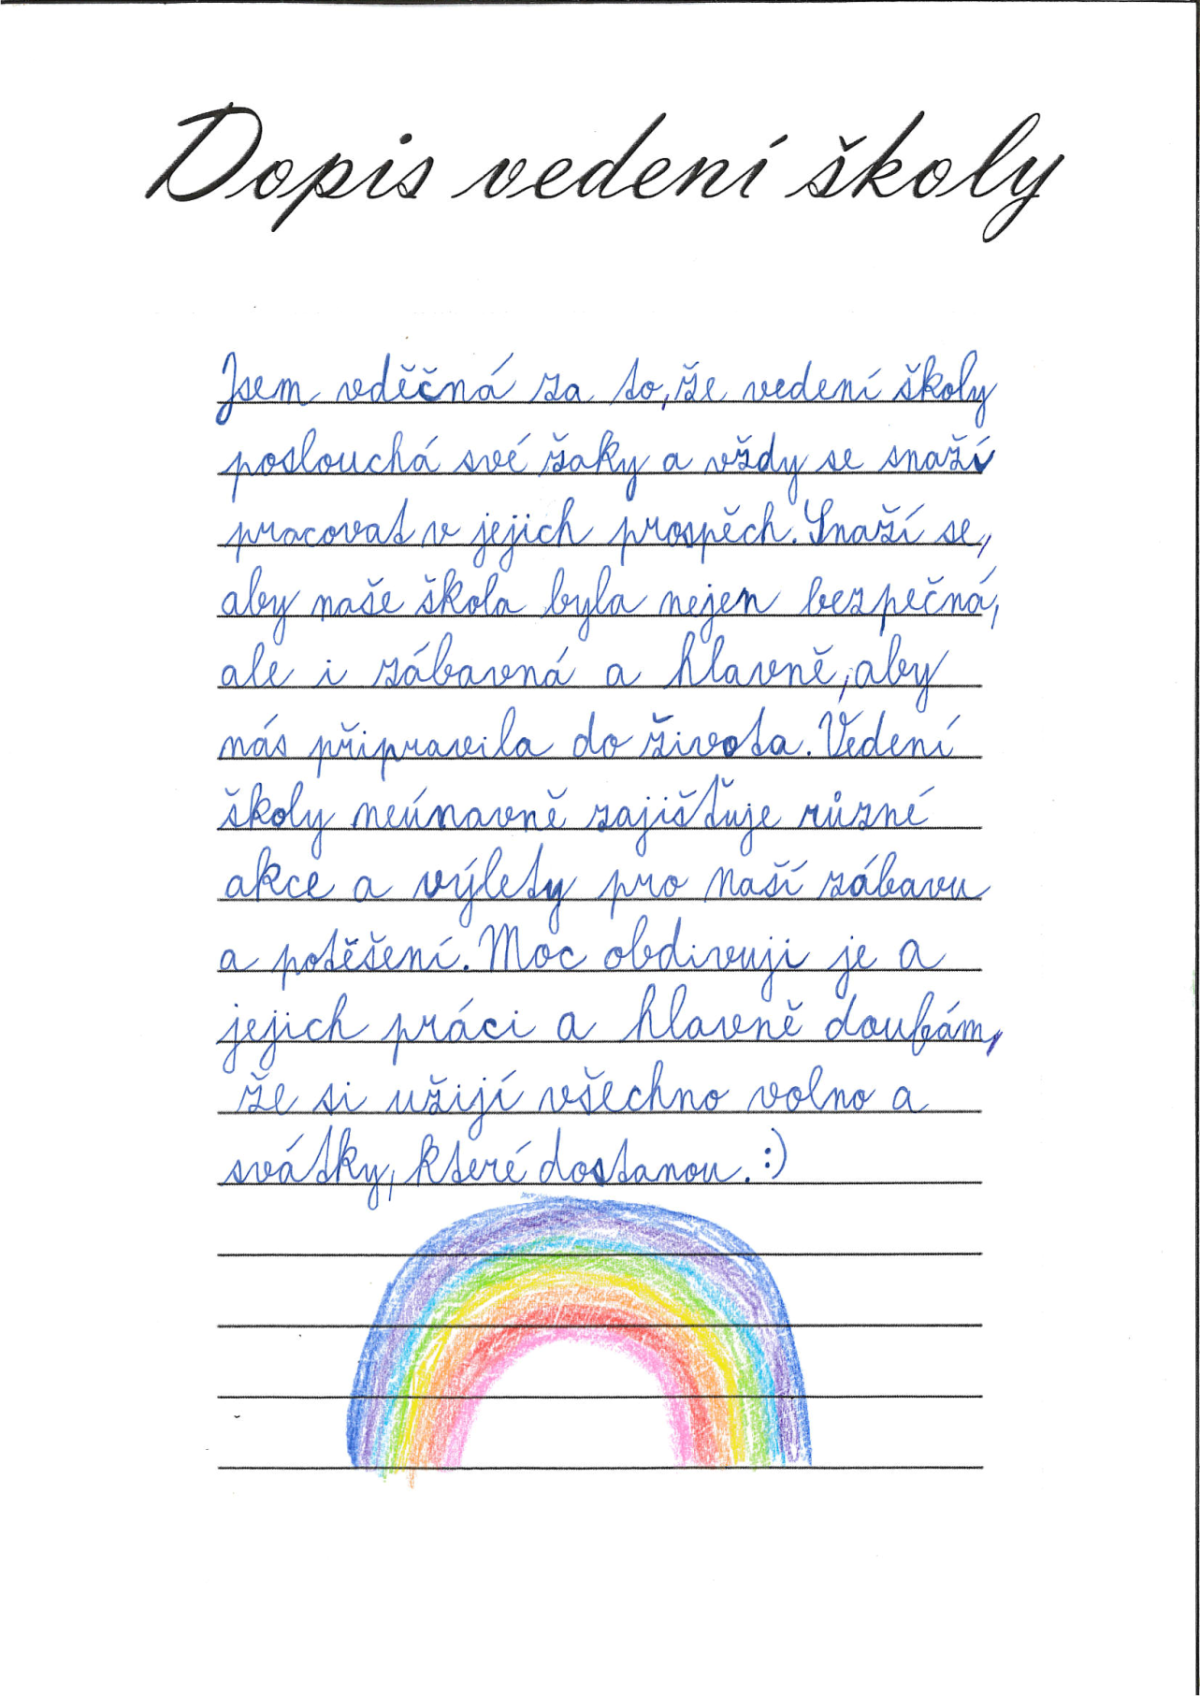 Dopis vedení školy
Jsem vděčná za to, že vedení školy
poslouchá své žaky a vždy se snaží
pracovat v jejich prospěch. Snaží se,
aby naše škola byla nejen bezpečná,
ale i zábavná a hlavně, aby
nás připravila do života. Vedení
školy neúnavně zajišťuje různé
akce a výlety pro naší zábavu
a potěšení. Moc obdivuji je a
jejich práci a hlavně doufám,
že si užijí všechno volno a
svátky, které dostanou. :)